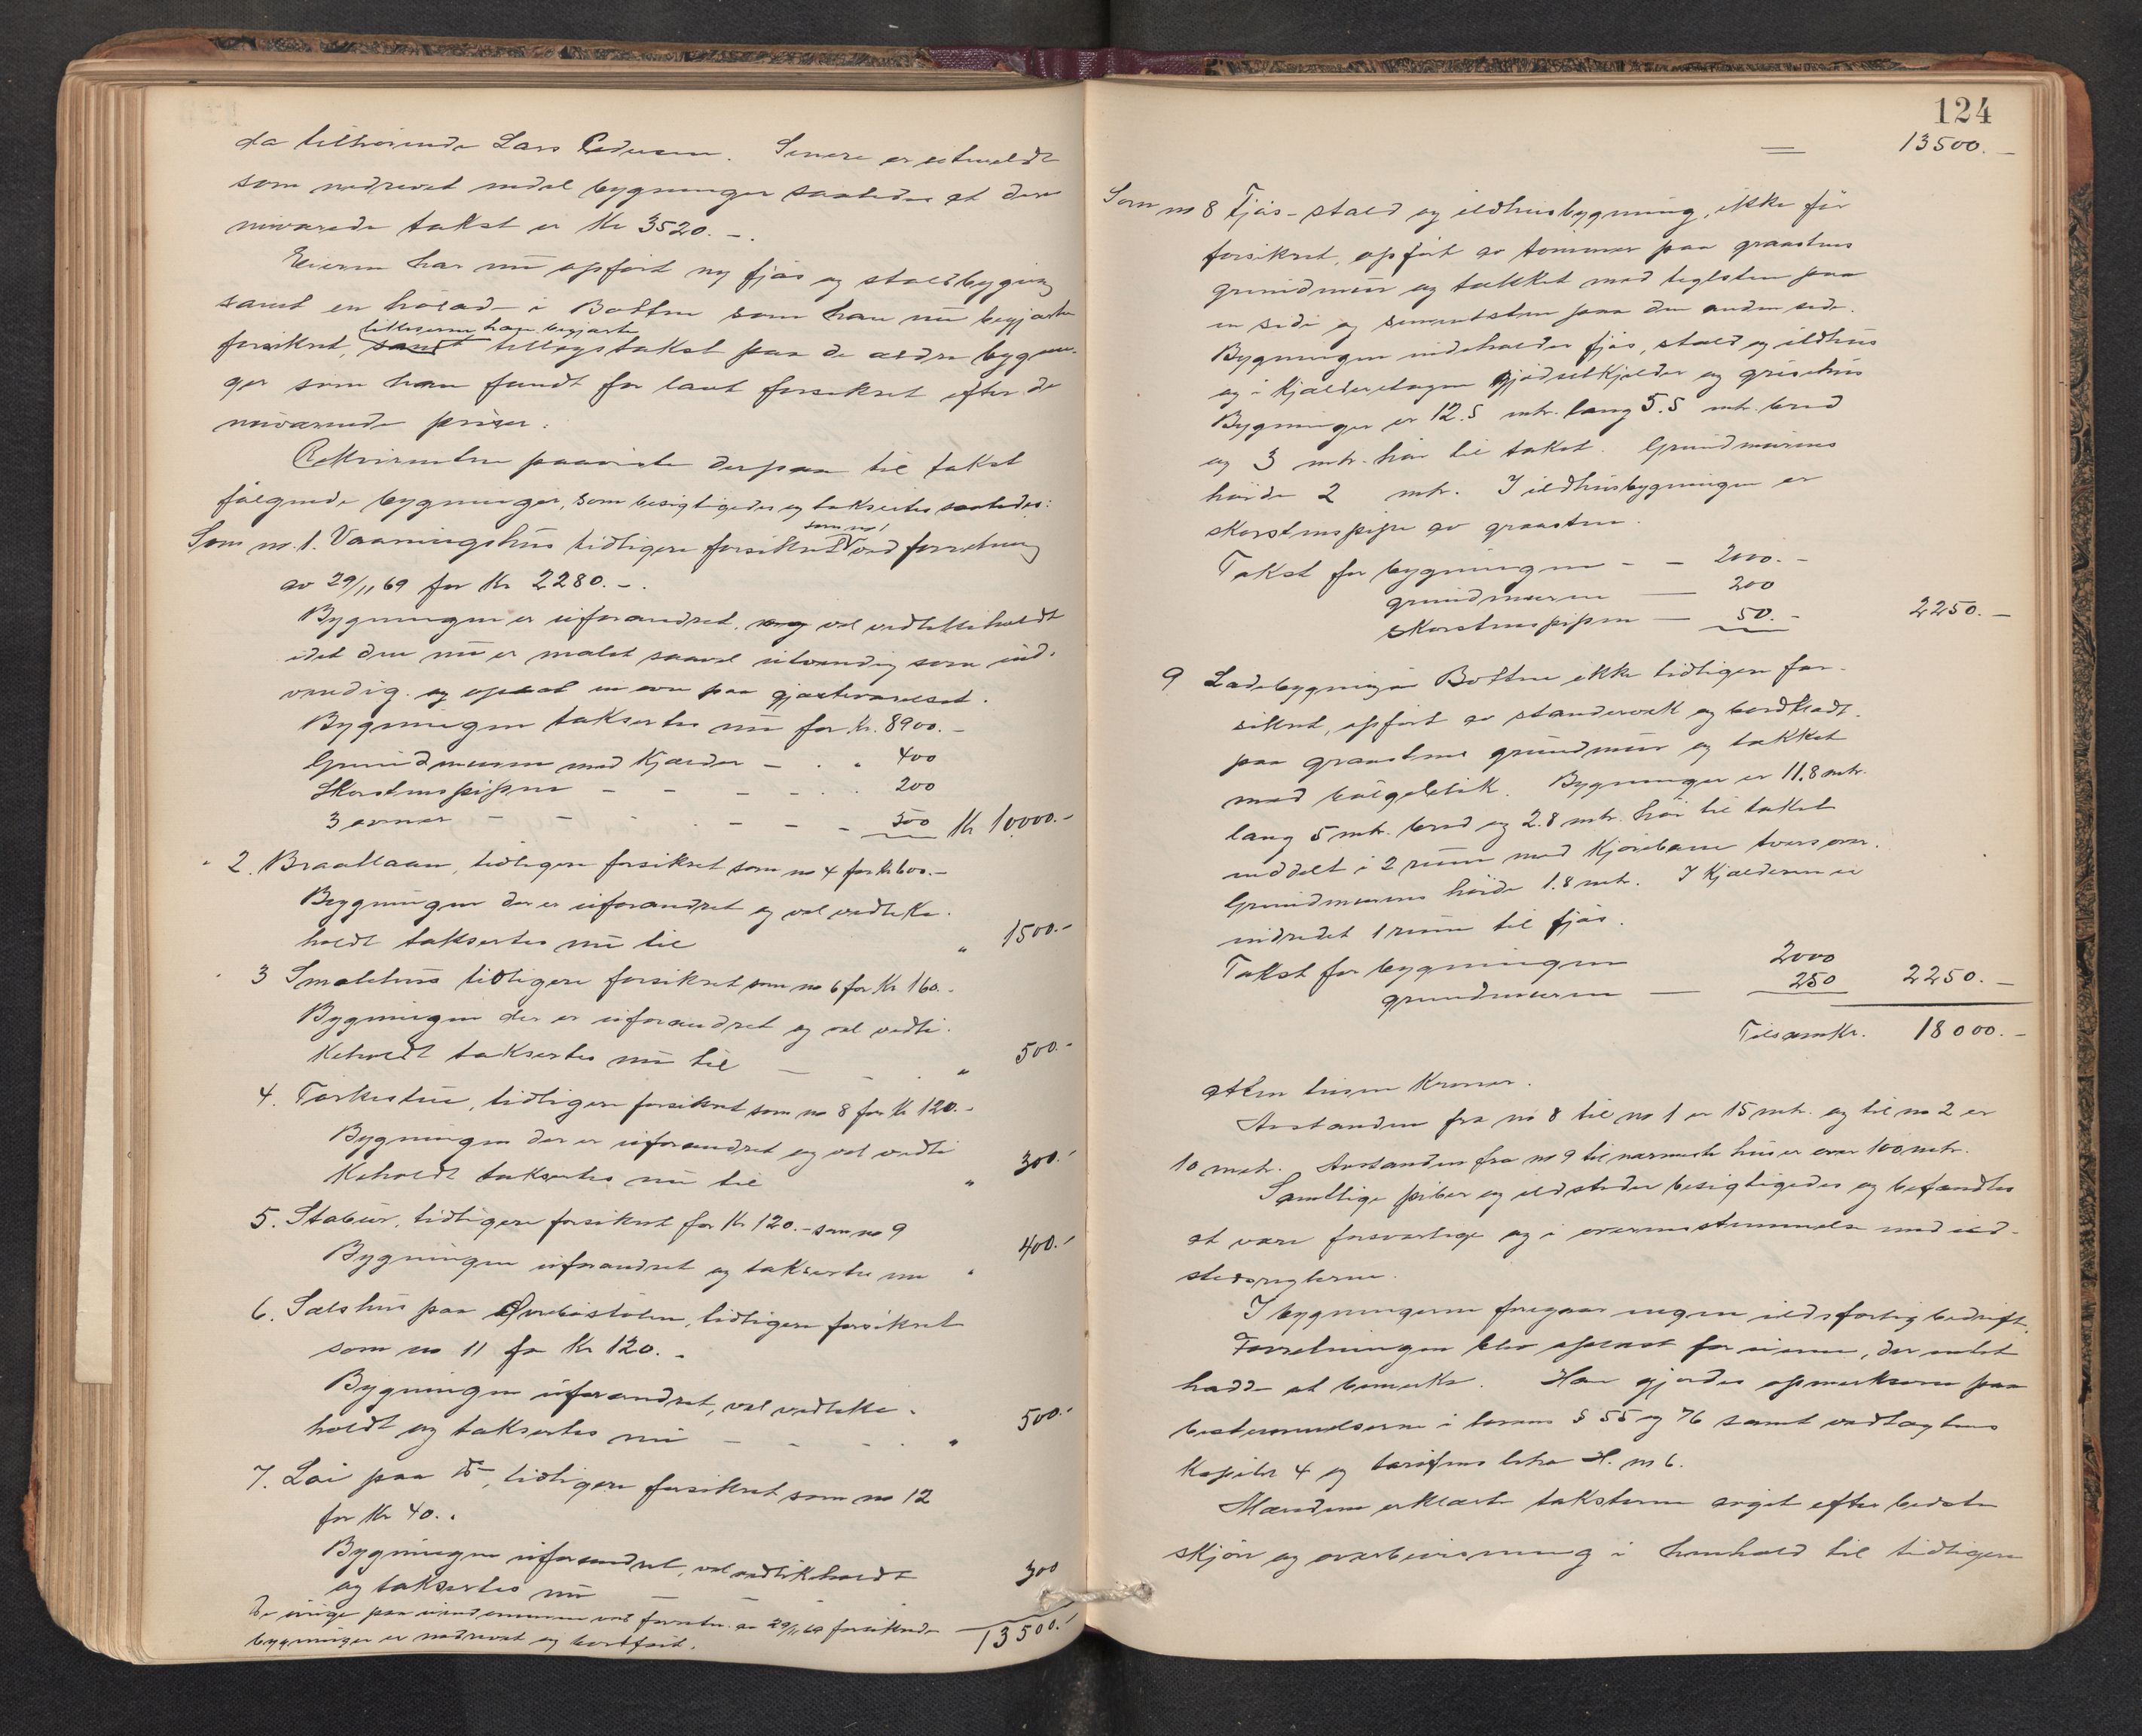 da tilhørende Lars Pedersen. Senere er utmeldt
som nedrevet endel bygninger saaledes at den
nuværende takst er Kr 3520.-.
Eieren har nu opført ny fjøs og staldbygning
samt en høilade i Bottnen som han nu begjærte
forsikret, samt tillægstakst paa de ældre bygnin-
tillikemed han begjærte
ger som han fandt for lavt forsikret efter de
nuværende priser.
Rekvirenten paaviste derpaa til takst
følgende bygninger, som besigtigedes og taksertes saaledes:
Som no. 1. Vaaningshus tidligere forsikret som no 1 ved forretning
av 29/11 69 for Kr 2280.-.
Bygningen er uforandret, og vel vedlikeholdt
idet den nu er malet saavel utvendig som ind-
vendig og opsat en ovn paa gjesteværelset.
Bygningen taksertes nu for Kr. 8900.-
Grundmuren med Kjælder - . . 400
Skorstenspipen - - - - . . 200
3 ovner - - - . - - - 500 Kr 10.000.-
" 2. Braatlaan, tidligere forsikret som no 4 for Kr 600.-
Bygningen der er uforandret og vel vedlike-
holdt taksertes nu til " 1500.-
" 3 Smalehus tidligere forsikret som no 6 for Kr 160.-
Bygningen der er uforandret og vel vedli-
keholdt taksertes nu til - - . " 500.-
4. Tørkestue, tidligere forsikret som no 8 for Kr 120.-
Bygningen der er uforandret og vel vedli
keholdt taksertes nu til " 300.-
5. Stabur, tidligere forsikret for Kr 120.- som no 9
Bygningen uforandret og taksertes nu " 400.-
6. Sælshus paa Øvrebøstølen, tidligere forsikret
som no 11 for Kr 120.-
Bygningen uforandret, vel vedlike-
holdt og taksertes nu - - . . " 500.-
7. Løi paa do, tidligere forsikret som no 12
for Kr 40..
Bygningen uforandret, vel vedlikeholdt
og taksertes nu 300
De øvrige paa eiendommen ved forretn. av 29/11 69 forsikrede
bygninger er nedrevet og bortført. 13500.-
124
= 13500.-
Som no 8 Fjøs- stald og ildhusbygning, ikke før
forsikret, opført av tømmer paa graastens
grundmur og tækket med teglsten paa
en side og sementsten paa den anden side.
Bygningen indeholder fjøs, stald og ildhus
og i kjælderetagen gjødselkjælder og grisehus
Bygningen er 12.5 mtr. lang 5.5 mtr. bred
og 3 mtr. høi til taket. Grundmurens
høide 2 mtr. I ildhusbygningen er
skorstenspipe av graasten.
Takst for bygningen - - 2000.-
grundmuren — 200
skorstenspipen — 50.- 2250.-
9 Ladebygning i Bottnen ikke tidligere for-
sikret, opført av standerverk og bordklædt
paa graastens grundmur og tækket
med bølgeblik. Bygningen er 11.8 mtr.
lang 5 mtr. bred og 2.8 mtr. høi til taket
inddelt i 2 rum med kjørebane tvers over.
Grundmurens høide 1.8 mtr. I kjælderen er
indredet 1 rum til fjøs.
Takst for bygningen 2000
grundmuren — 250 2250.-
Tilsam Kr. 18000.-
Atten tusen Kroner.
Avstanden fra no 8 til no 1 er 15 mtr. og til no 2 er
10 mtr. Avstanden fra no 9 til nærmeste hus er over 100 mtr.
Samtlige piber og ildsteder besigtigedes og befandtes
at være forsvarlige og i overensstemmelse med ild-
stedsreglerne.
I bygningerne foregaar ingen ildsfarlig bedrift.
Forretningen blev oplæst for eieren, der intet
hadde at bemerke. Han gjordes opmerksom paa
bestemmelserne i lovens § 55 og 76 samt vedtægtens
Kapitel 4 og tariffens litra H. no 6.
Mændene erklærte taksterne avgit efter bedste
skjøn og overbevisning i henhold til tidligere